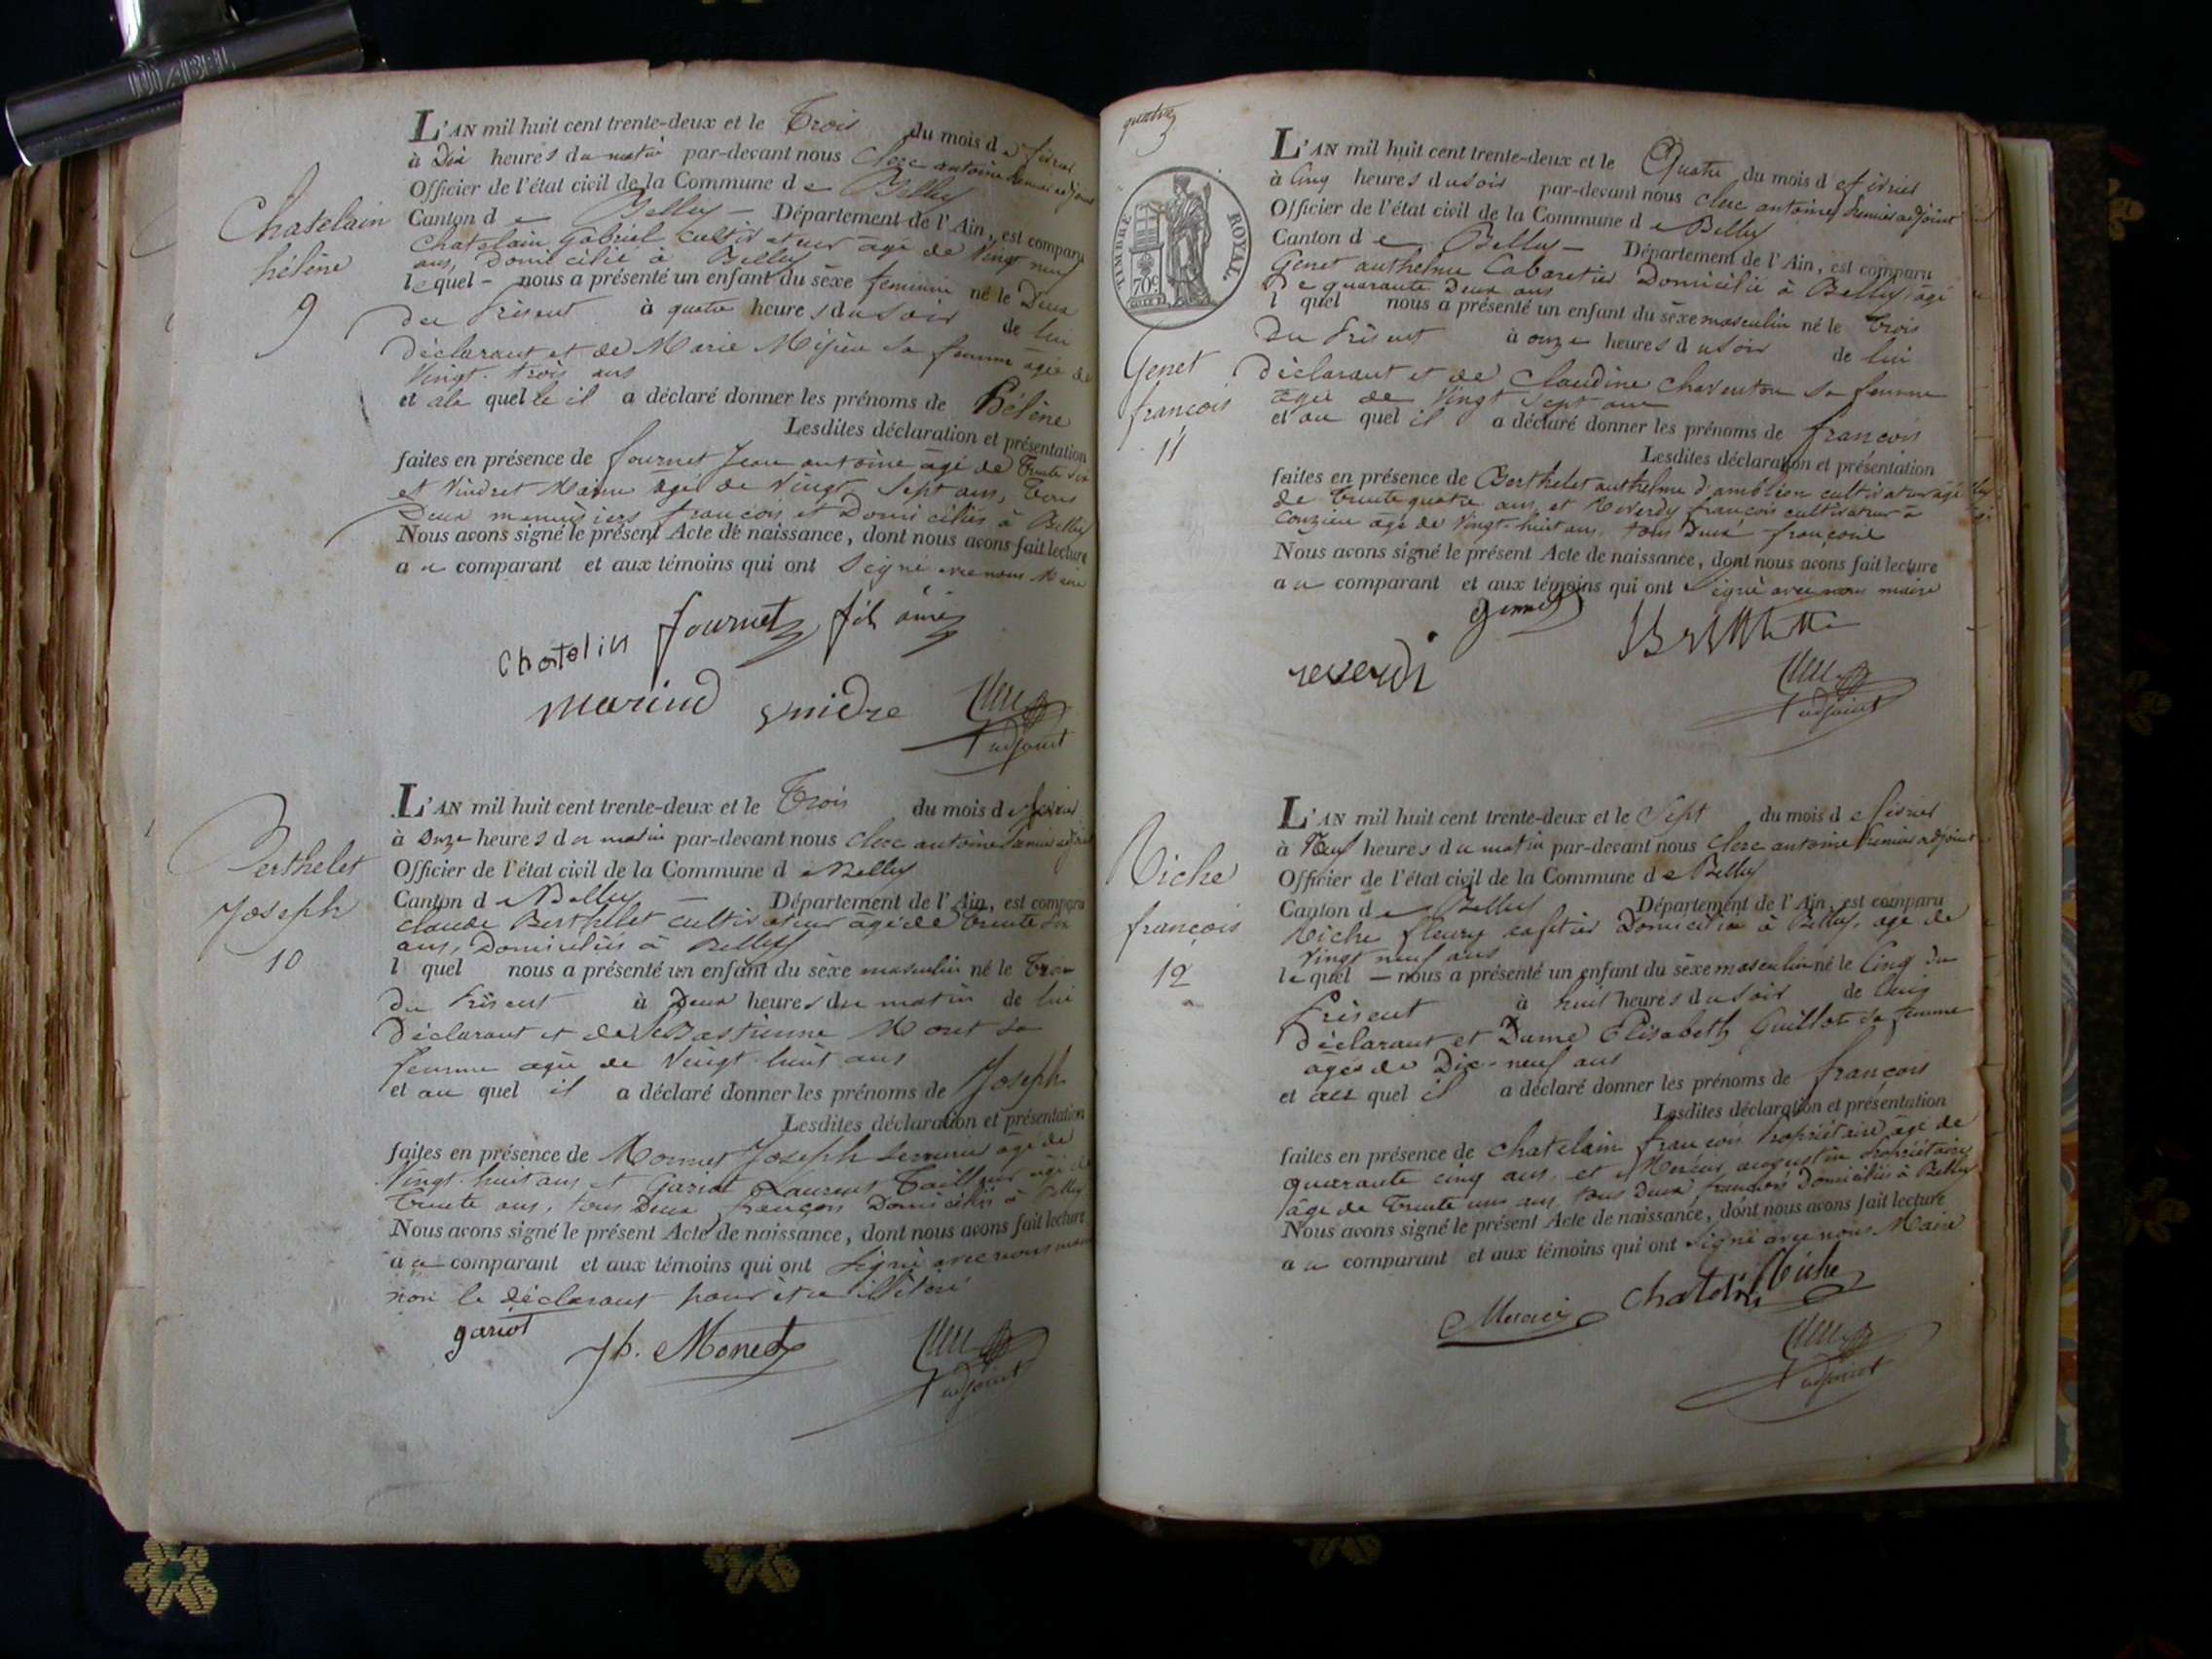 L'AN mil huit cent trente-deux et le Trois du mois de février
à Dix heures du matin par-devant nous Clerc antoine Premier adjoint
Officier de l'état civil de la Commune de Belley
Canton de Belley — Département de l'Ain, est comparu
Chatelain Gabriel cultivateur âgé de Vingt neuf
ans, Domicilié à Belley
lequel - nous a présenté un enfant du sexe feminin né le Deux
du Présent à quatre heures du soir de lui
Déclarant et de Marie Méjieu sa femme agée de
Vingt-trois ans
et a la quelle il a déclaré donner les prénoms de Hélène
Lesdites déclaration et présentation
faites en présence de fournet Jean antoine âgé de Trente six
et Vindret Marin agé de Vingt Sept ans, Tous
Deux menuisiers francois et Domiciliés à Belley
Nous avons signé le présent Acte de naissance, dont nous avons fait lecture
au comparant et aux témoins qui ont Signé avec nous Maire
Chatelain
hélène
9
Chatelin fournet fils ainé
marind vnidre Clerc
adjoint
L'AN mil huit cent trente-deux et le Trois du mois de février
à Onze heures du matin par-devant nous Clerc antoine Premier adjoint
Officier de l'état civil de la Commune de Belley
Canton de Belley — Département de l'Ain, est comparu
Claude Berthelet cultivateur âgé de Trente six
ans, Domiciliés à Belley
l quel nous a présenté un enfant du sexe masculin né le Trois
du Présent à Deux heures du matin de lui
Déclarant et de Bastienne Mont sa
femme agée de Vingt-huit ans
et au quel il a déclaré donner les prénoms de Joseph
Lesdites déclaration et présentation
faites en présence de Monnet Joseph Serrurier âgé de
Vingt-huit ans et Gariot Laurent Tailleur âgé de
Trente ans, tous Deux françois Domiciliés à Belley
Nous avons signé le présent Acte de naissance, dont nous avons fait lecture
au comparant et aux témoins qui ont Signé avec nous maire
non le déclarant pour être illitéré
Berthelet
Joseph
10
gariot
Jh. Monet Clerc
adjoint
quatre
TIMBRE ROYAL
70c
L'AN mil huit cent trente-deux et le Quatre du mois de février
à Cinq heures du soir par-devant nous Clerc antoine Premier adjoint
Officier de l'état civil de la Commune de Belley
Canton de Belley — Département de l'Ain, est comparu
Genet anthelme Cabaretier Domicilié à Belley, âgé
De quarante Deux ans
l quel nous a présenté un enfant du sexe masculin né le Trois
Du Présent à onze heures du soir de lui
Déclarant et de Claudine Charenton sa femme
agée de Vingt Sept ans
et au quel il a déclaré donner les prénoms de françois
Lesdites déclaration et présentation
faites en présence de Berthelet anthelme d'amblion cultivateur âgé
de Trente quatre ans, et Reverdy françois cultivateur à
Conzieu âgé de Vingt-huit ans, tous Deux françois
Nous avons signé le présent Acte de naissance, dont nous avons fait lecture
au comparant et aux témoins qui ont Signé avec nous maire
Genet
françois
11
reverdi
Clerc
adjoint
L'AN mil huit cent trente-deux et le Sept du mois de février
à Neuf heures du matin par-devant nous Clerc antoine Premier adjoint
Officier de l'état civil de la Commune de Belley
Canton de Belley Département de l'Ain, est comparu
Riche fleury cafetier Domicilié à Belley, agé de
Vingt neuf ans
lequel — nous a présenté un enfant du sexe masculin né le Cinq du
Présent à huit heures du soir de lui
Déclarant et Dame Elisabeth Guillot sa femme
agés de Dix-neuf ans
et au quel il a déclaré donner les prénoms de françois
Lesdites déclaration et présentation
faites en présence de Chatelain françois Propriétaire, agé de
quarante cinq ans, et Mercier augustin Propriétaire
âgé de Trente un ans, tous Deux françois Domiciliés à Belley
Nous avons signé le présent Acte de naissance, dont nous avons fait lecture
au comparant et aux témoins qui ont Signé avec nous Maire
Riche
françois
12
Mercier Chatelin Riche
Clerc
adjoint